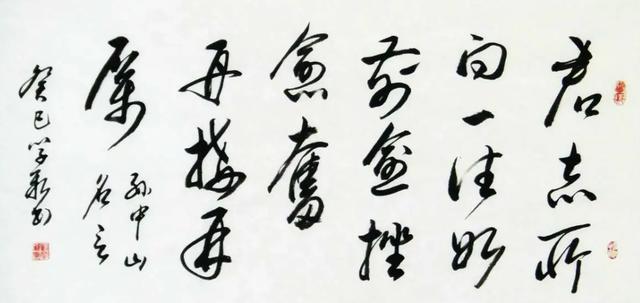 吾志所
向一往無
前愈挫
愈奮
再接再
厲
孫中山
名言
癸巳学书